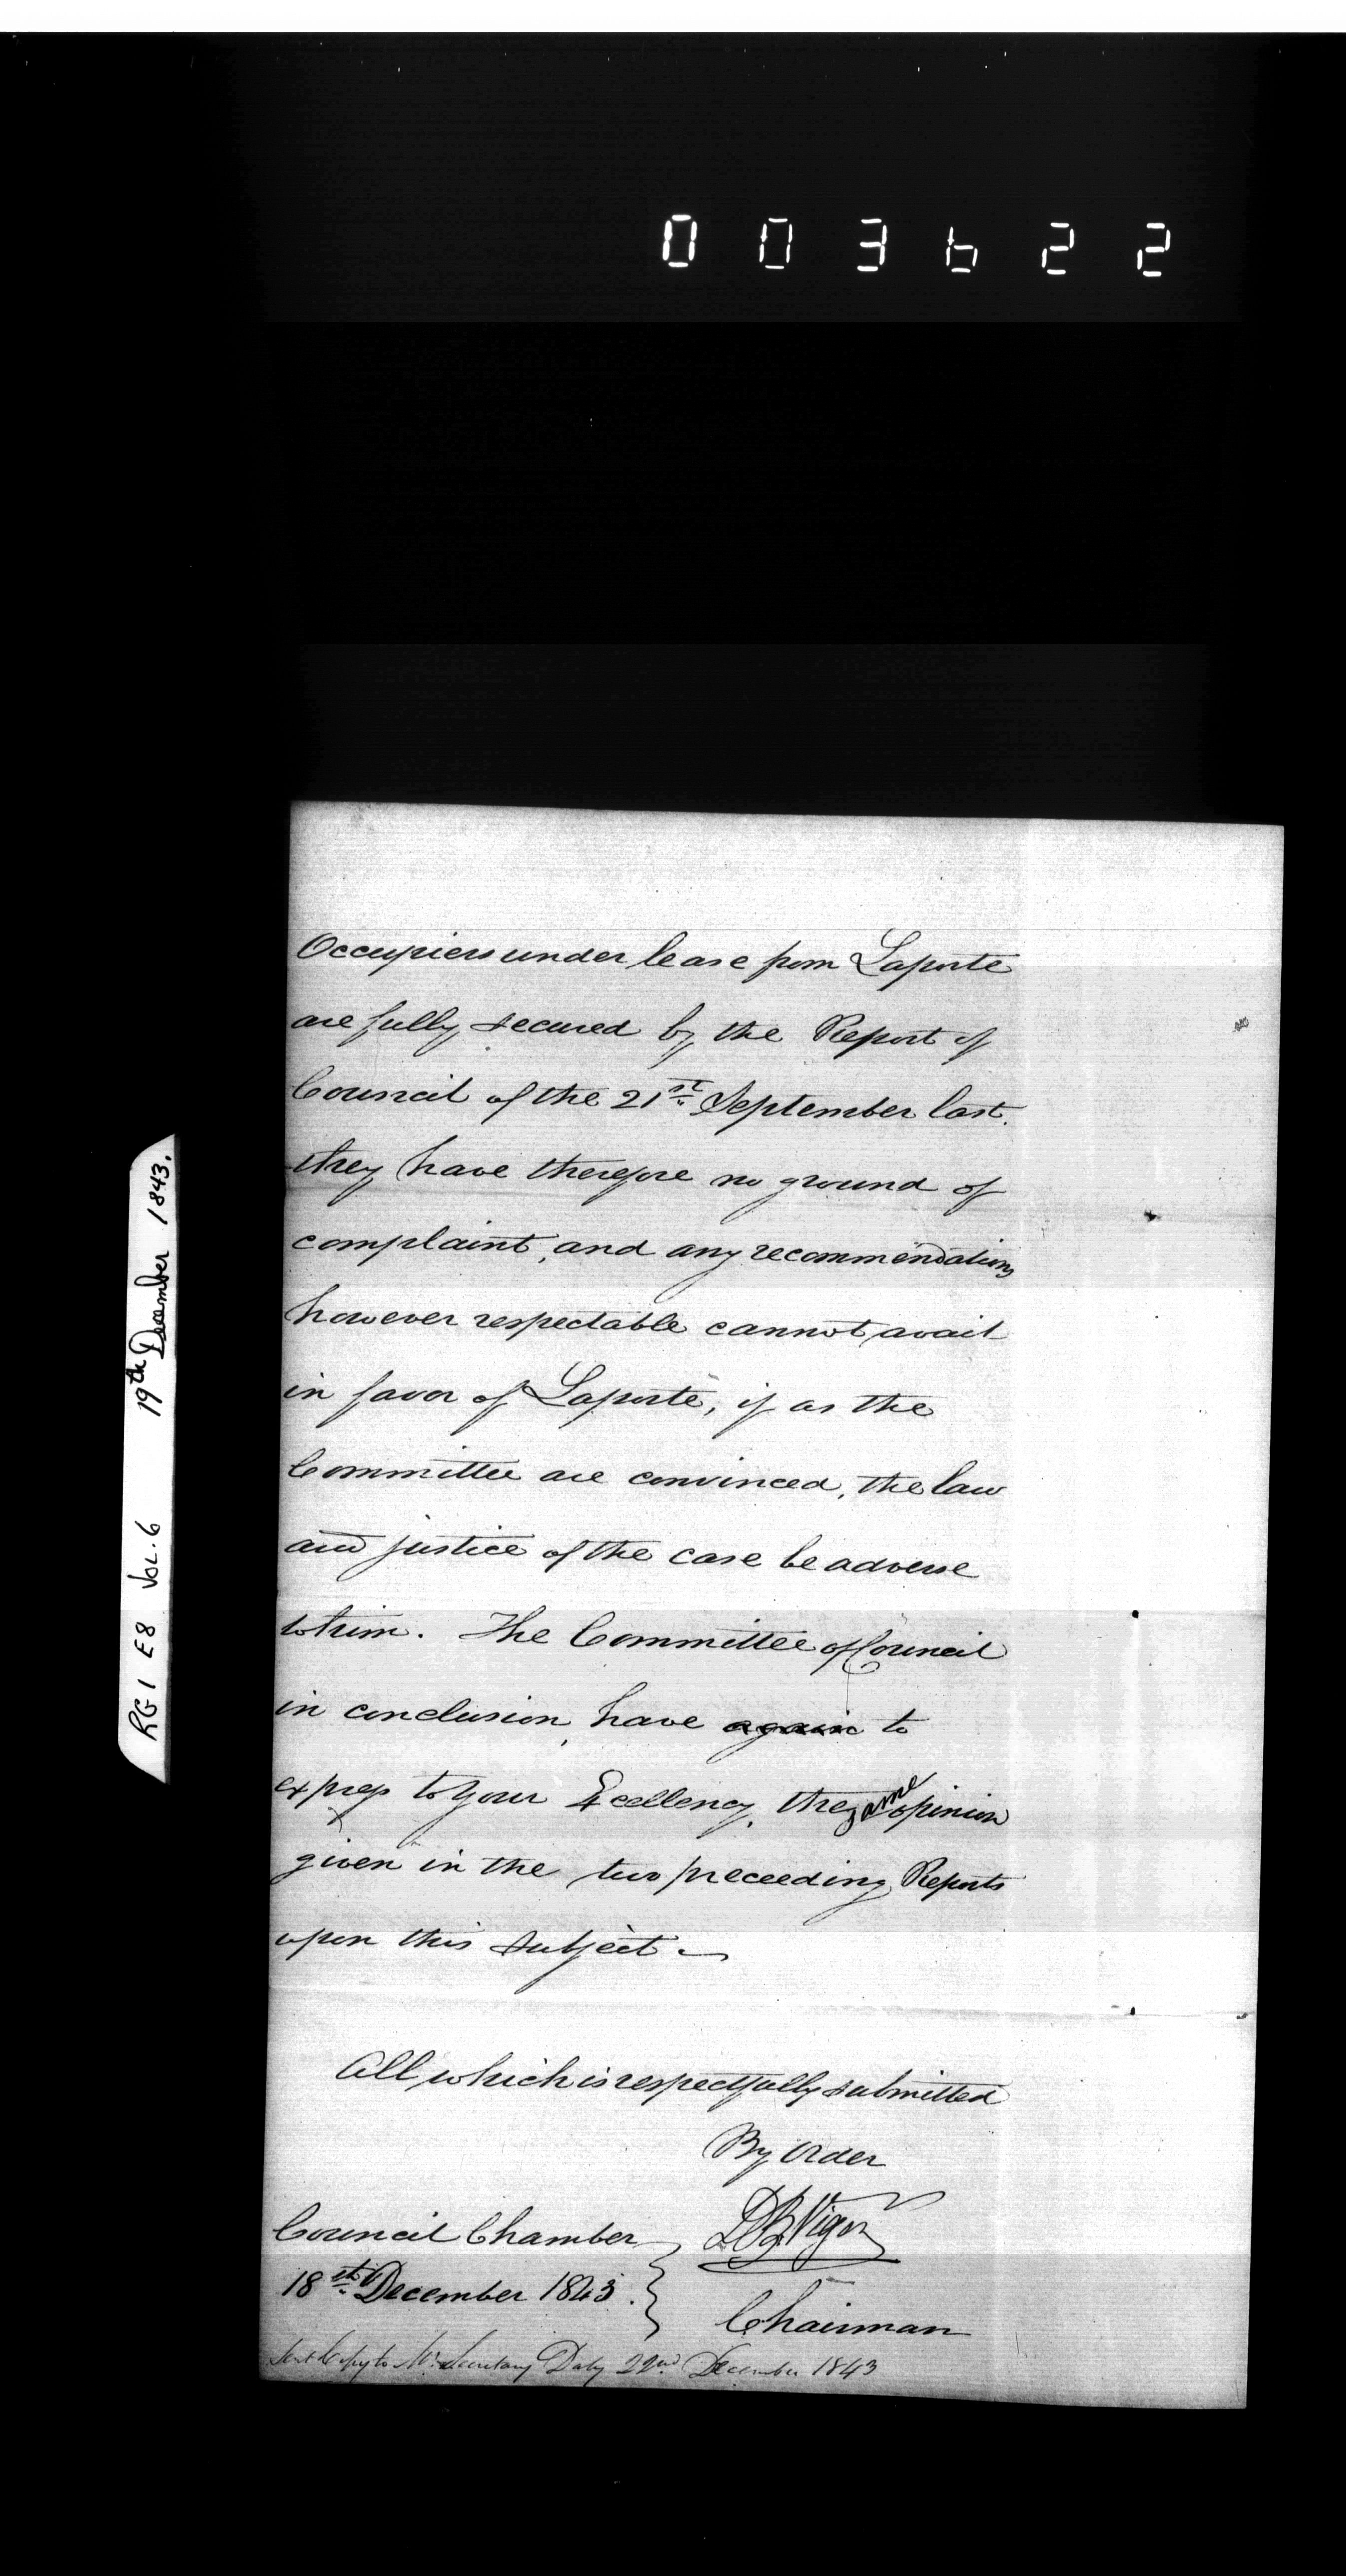 003622
RG1 E8 Vol. 6 19th December 1843.
Occupiers under lease from Laporte
are fully secured by the Report of
Council of the 21st September last.
they have therefore no ground of
complaint, and any recommendations
however respectable cannot avail
in favor of Laporte, if as the
Committee are convinced, the law
and justice of the case be adverse
to him. The Committee of Council
in conclusion, have again to
express to Your Excellency, the same opinion
given in the two preceeding Reports
upon this subject—
All which is respectfully submitted
By Order
DB Viger
Council Chamber
18th December 1843.
Chairman
Sent Copy to Mr. Secretary Daly 22nd December 1843